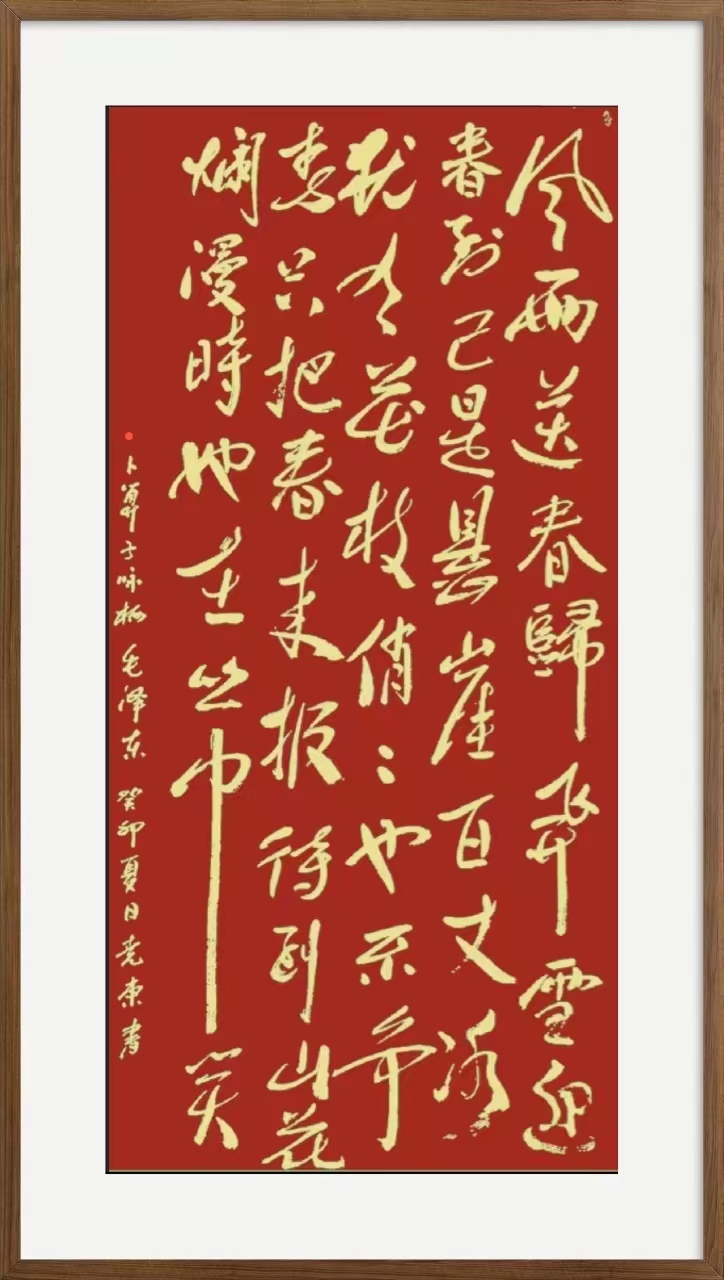 風雨送春歸飛雪迎
春到已是懸崖百丈冰
犹有花枝俏:也不争
春只把春来报待到山花
爛漫時她在丛中笑
卜算子咏梅 毛泽东 癸卯夏日尧東書